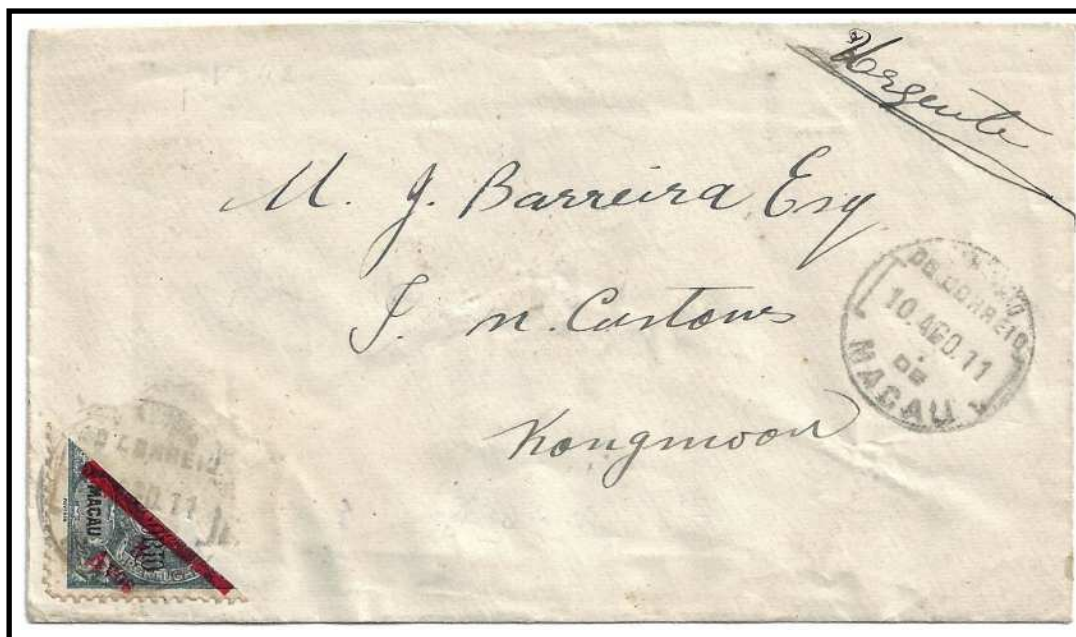 Urgente
M. J. Barreira Esq
I. M. Customs
Kongmoon
DO CORREIO
10. AGO. 11
DE
MACAU
CORREIO
GO. 11
MACAU